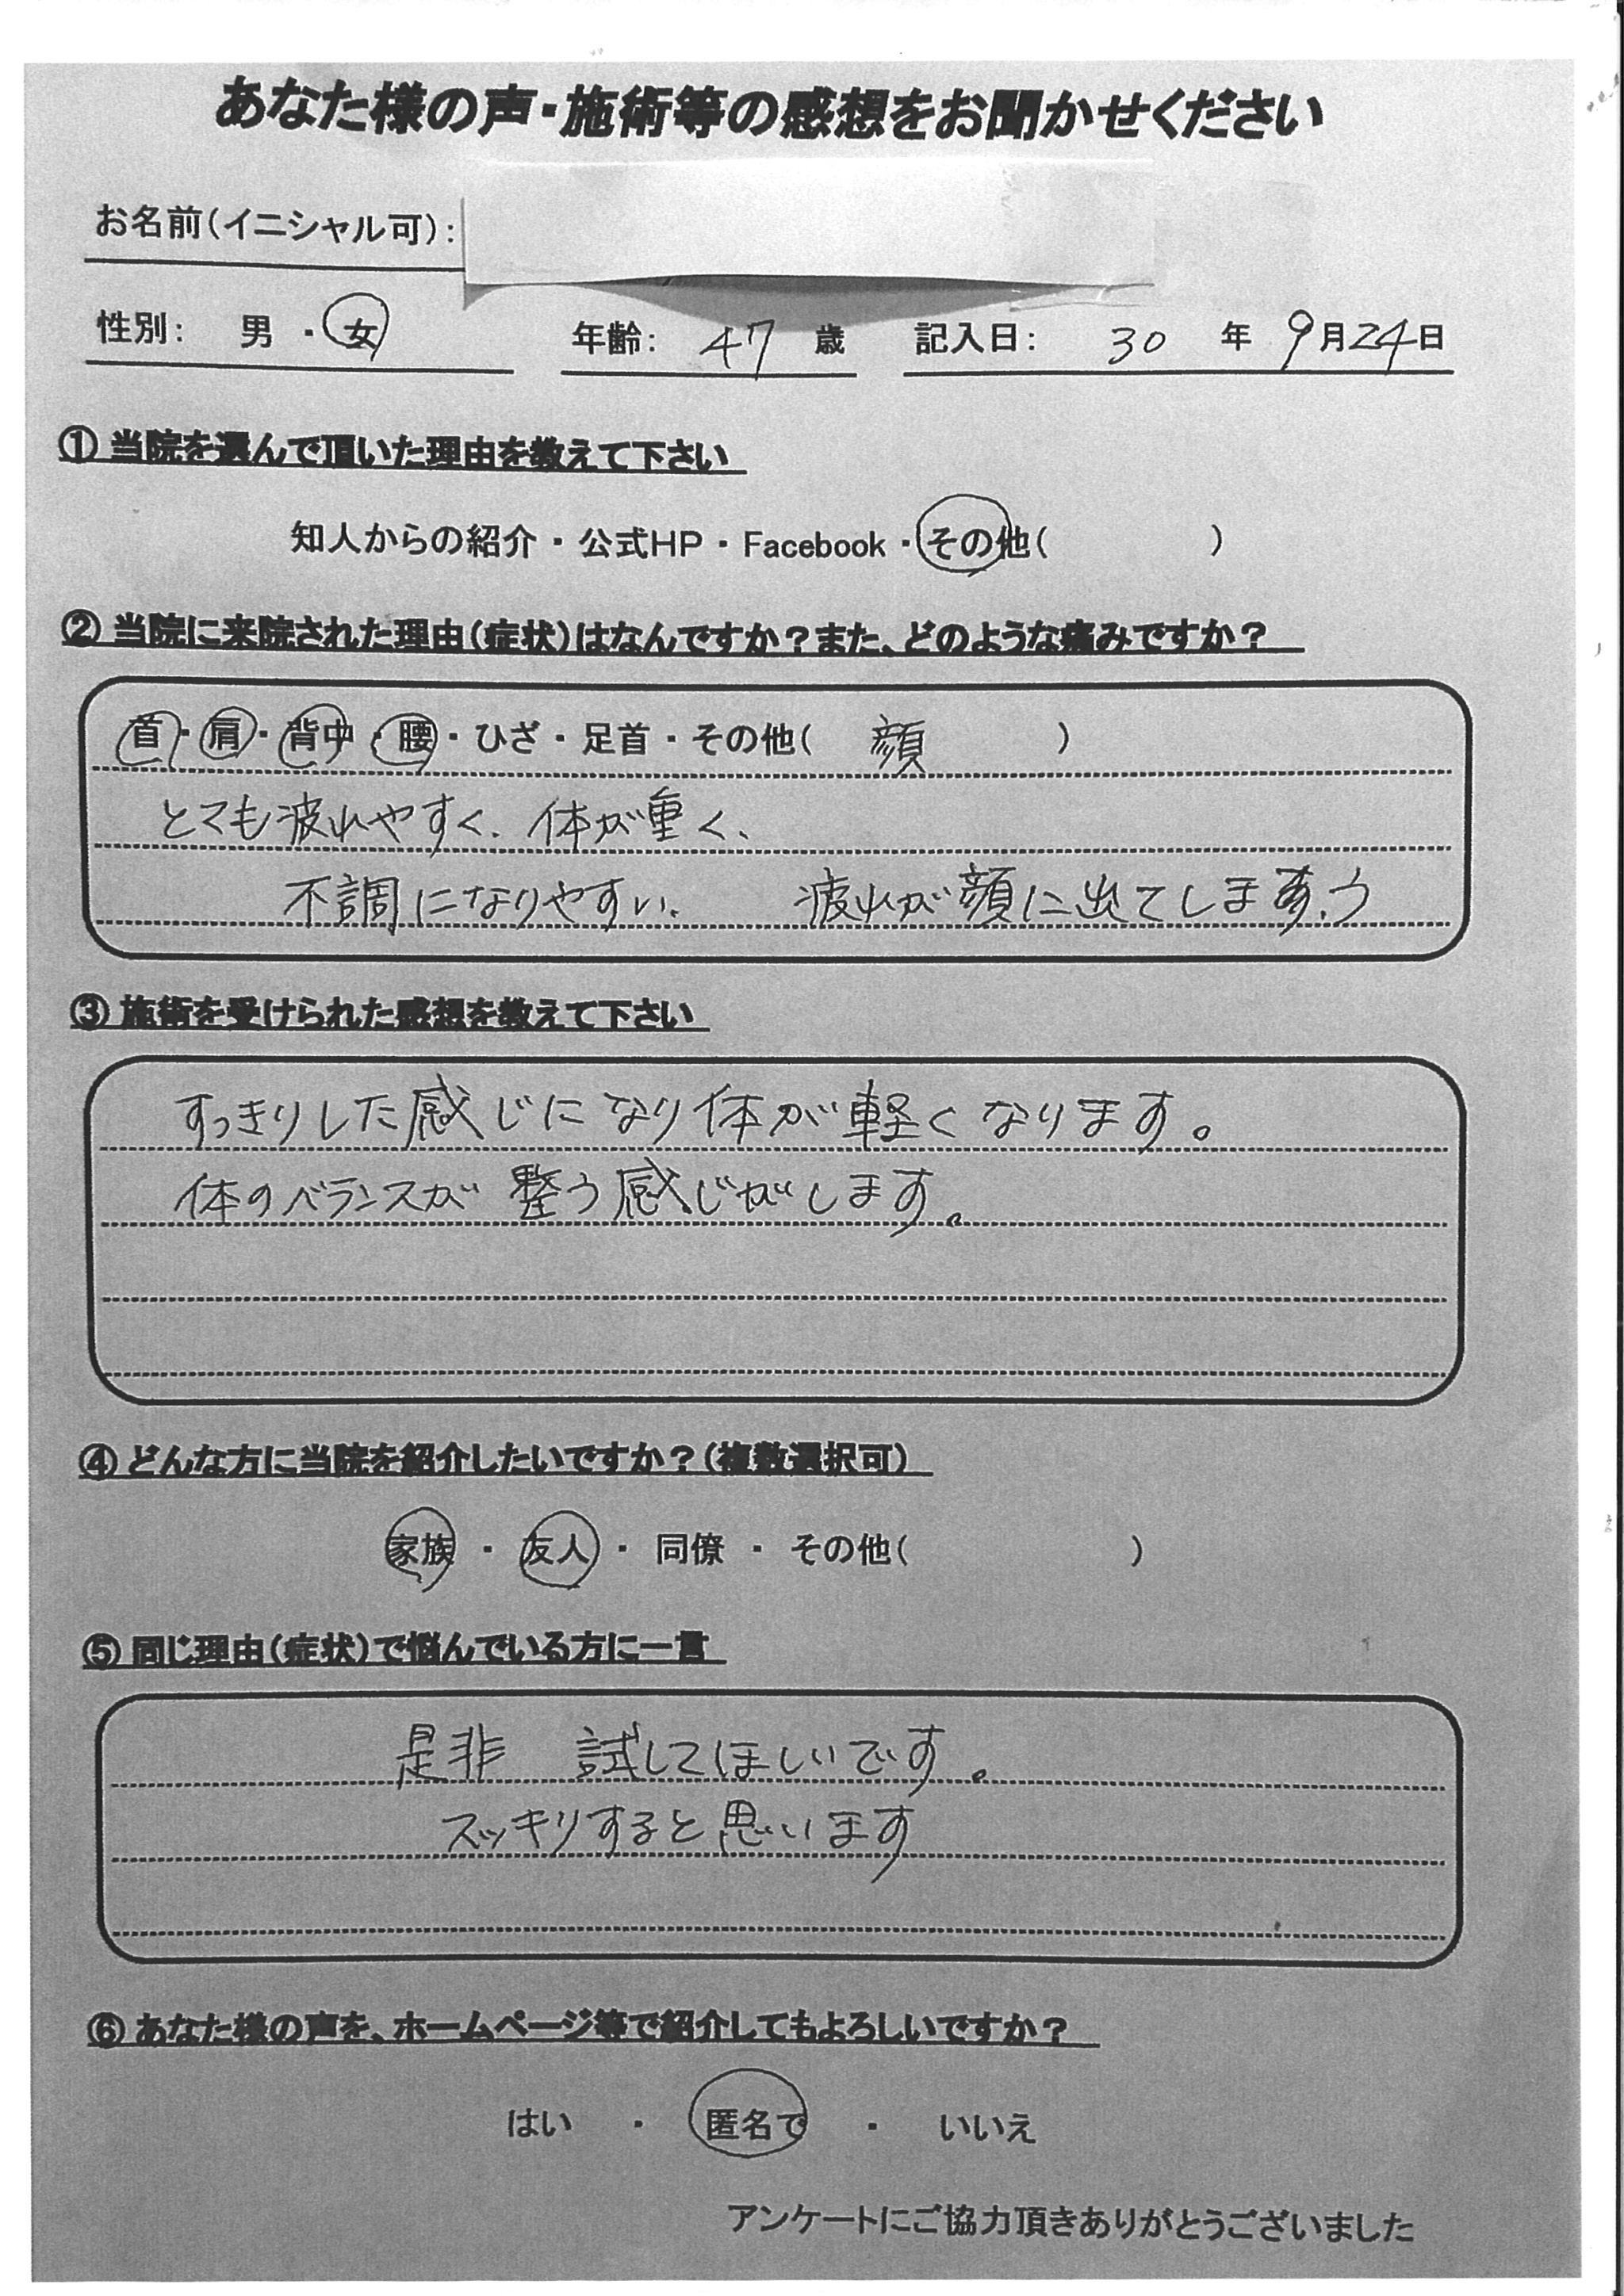 あなた様の声・施術等の感想をお聞かせください
お名前(イニシャル可):
性別: 男 ・ 女 年齢: 47 歳 記入日: 30 年 9月24日
① 当院を選んで頂いた理由を教えて下さい
知人からの紹介・公式HP・Facebook・その他( )
② 当院に来院された理由(症状)はなんですか?また、どのような痛みですか?
首・肩・背中・腰・ひざ・足首・その他( 顔 )
とても疲れやすく、体が重く、
不調になりやすい、 疲れが顔に出てしまう
③ 施術を受けられた感想を教えて下さい
すっきりした感じになり体が軽くなります。
体のバランスが整う感じがします。
④ どんな方に当院を紹介したいですか?(複数選択可)
家族 ・ 友人 ・ 同僚 ・ その他( )
⑤ 同じ理由(症状)で悩んでいる方に一言
是非 試してほしいです。
スッキリすると思います
⑥ あなた様の声を、ホームページ等で紹介してもよろしいですか?
はい ・ 匿名で ・ いいえ
アンケートにご協力頂きありがとうございました